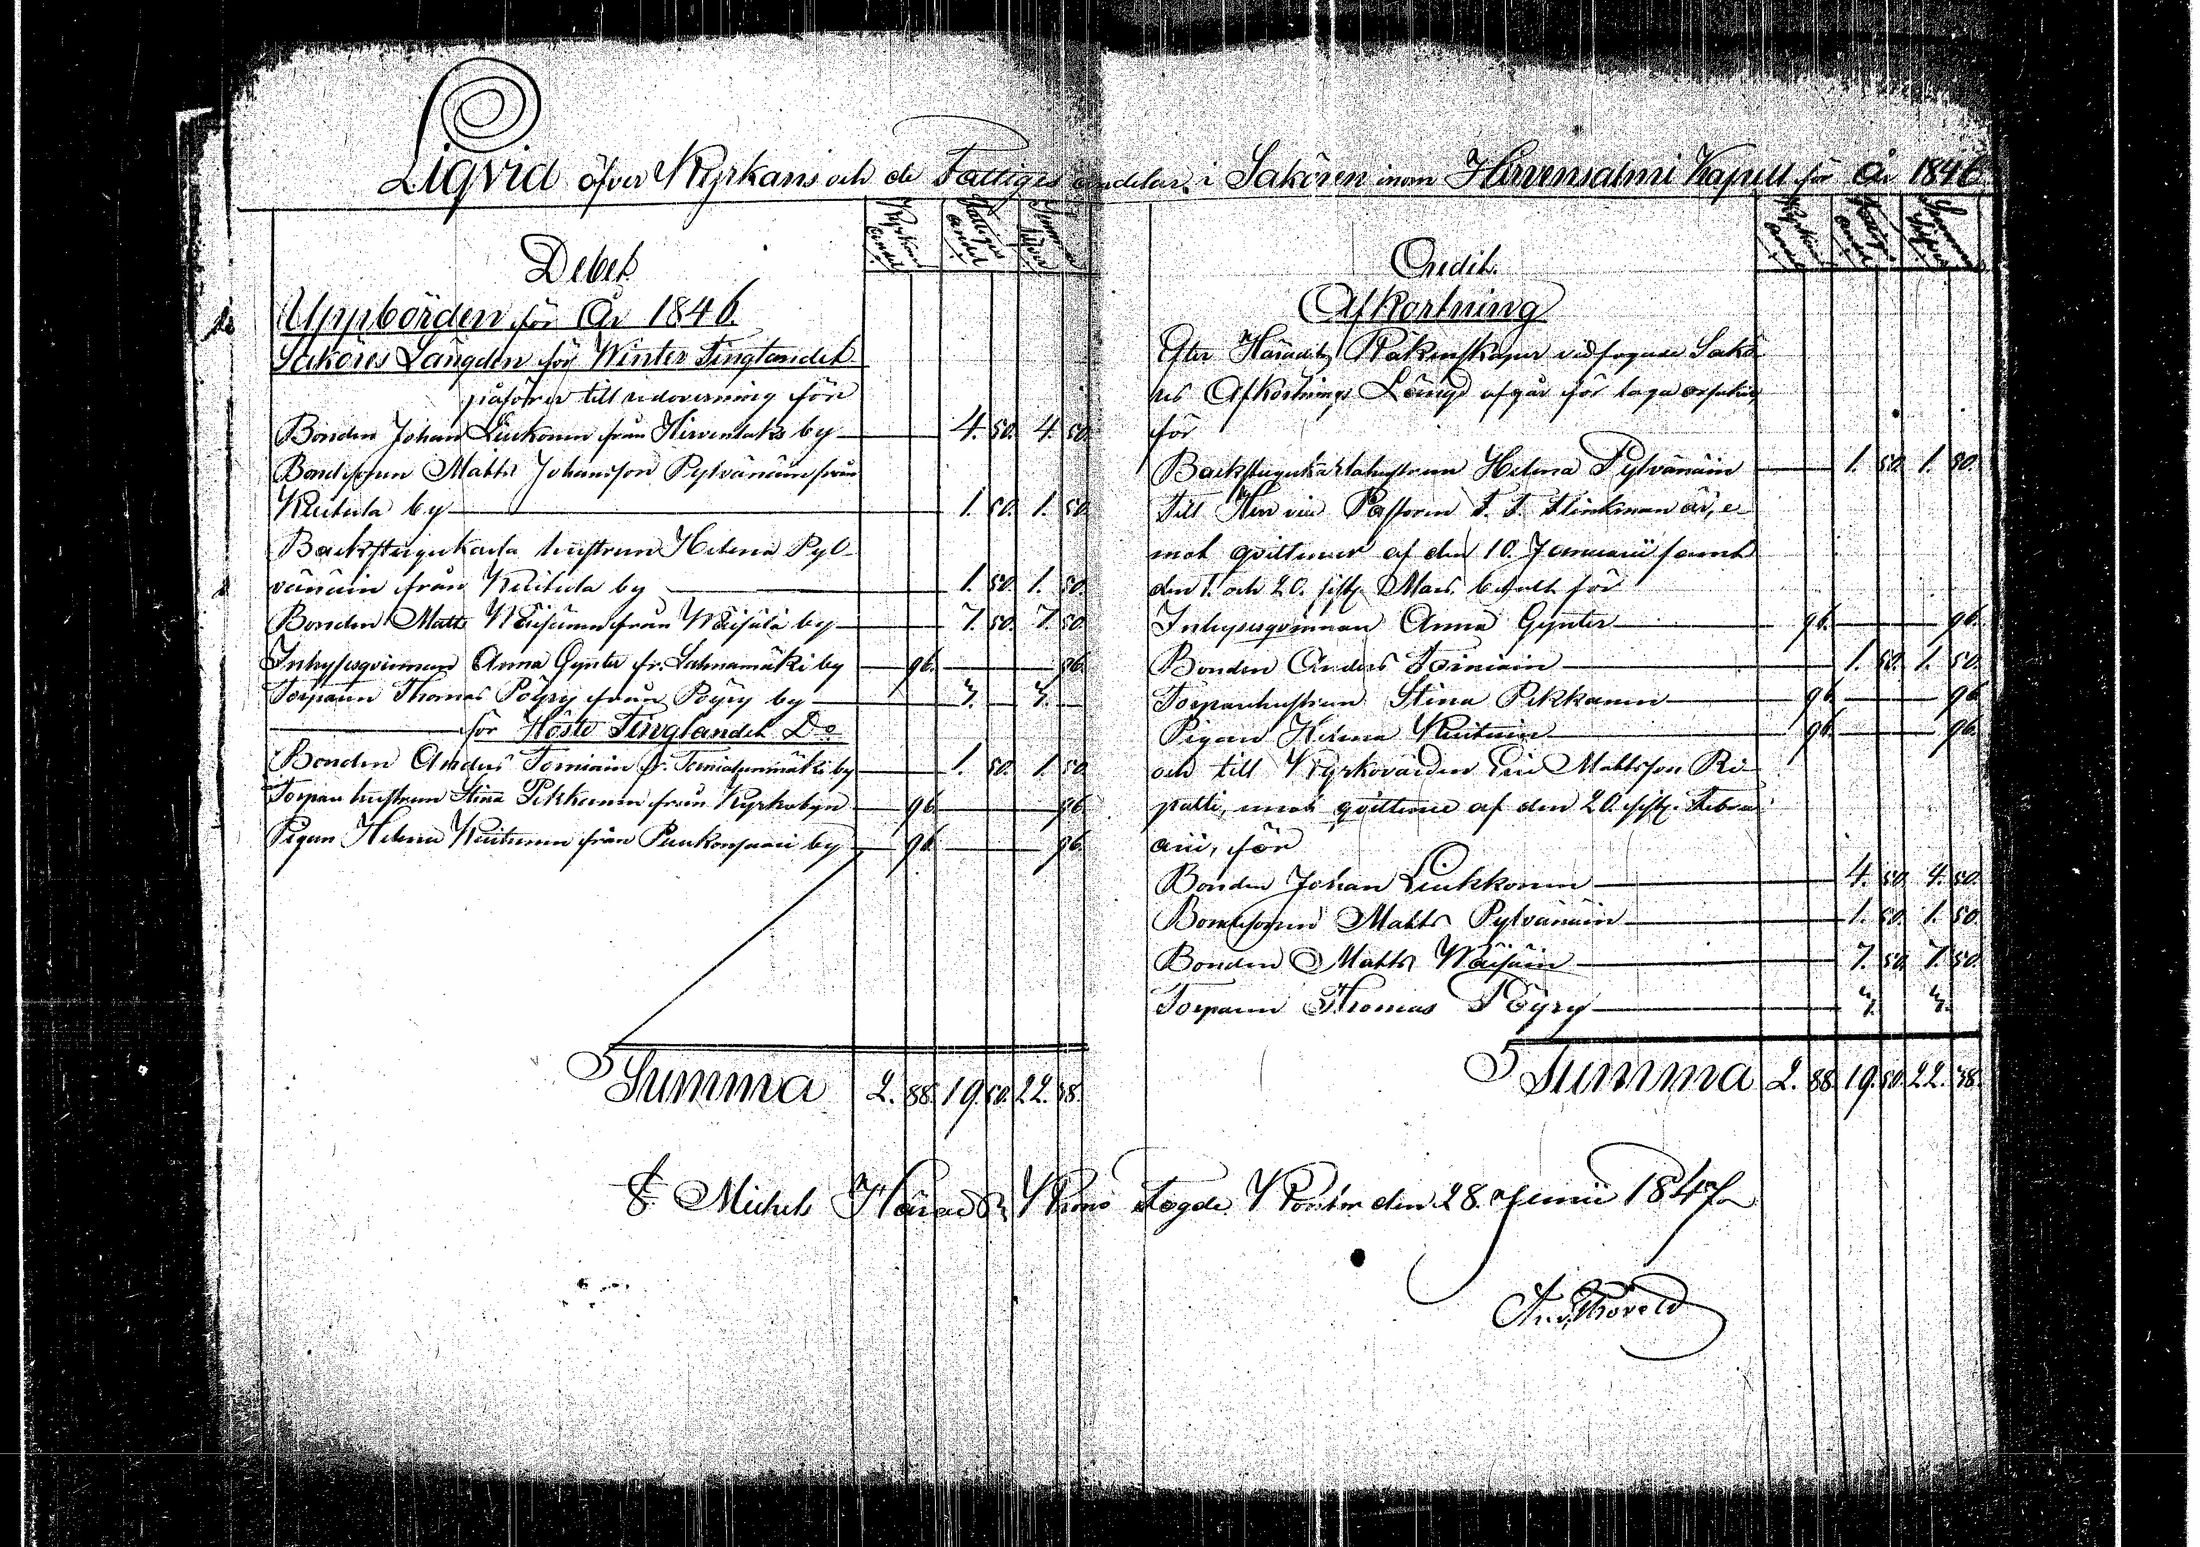 Liqvid öfver Kyrkans och de Fattigas andelar i Saköres inom Hirvensalmi Kapell för År 1846
Kyrkans andel. Fattiges andel. Summa Silfver
Debet
Uppbörden för År 1846.
Saköres Längden för Winter Tingtandet
påförer till redovisning för
Bonden Johan Liukonen från Hirvenlaks by 4. 50. 4. 50.
Bondesonen Matts Johansson Pylvänäin från
Kuitula by 1. 50. 1. 50.
Backstugukarla hustrun Helena Pyl-
vänäin från Kuitula by 1. 50. 1. 50.
Bonden Matts Wäisänen från Wäisälä by 7. 50. 7. 50
Inhysesqvinnan Anna Gynter fr. Lahnamäki by 96. 96.
Torparen Thomas Pöyry från Pöyry by 3. 3.
för Höste Tinglandet Do
Bonden Anders Torniain fr. Torniaisenmäki by 1. 50. 1. 50
Torpar hustrun Stina Pekkanen från Kyrkobyn 96. 96
Pigan Helena Kuitunen från Puukonsaari by 96. 96
Summa 2. 88. 19. 50. 22. 38.
Kyrkans andel. Fattiges andel. Summa Silfver
Credit.
Afkortning
Efter Häradets Räkenskaper vidfogade Sakö-
res Afkortnings Längd afgår för laga orsaker
för
Backstugukarlahustrun Helena Pylvänäin 1. 50. 1. 50.
Till Herr vice Pastorn F. F. Flinkman är, e-
mot qvittencer af den 10. Januarii samt
den 1. och 20. sistl. Mars. betalt för
Inhysesqvinnan Anna Gynter 96. 96.
Bonden Anders Torniain 1. 50. 1. 50.
Torparehustrun Stina Pekkanen 96 96
Pigan Helena Kuitunin 96. 96.
och till Kyrkovärden Eric Mattsson Ri-
patti, emot qvittence af den 20. sistl. Febru-
arii, för
Bonden Johan Liukkonen 4. 50. 4. 50.
Bondesonen Matts Pylvänäin 1. 50. 1. 50.
Bonden Matts Wäisäin 7. 50. 7. 50.
Torparen Thomas Pöyry 3. 3.
Summa 2. 88. 19. 50. 22. 38.
St Michels Härads Krono Fogde Kontor den 28. Junii 1847